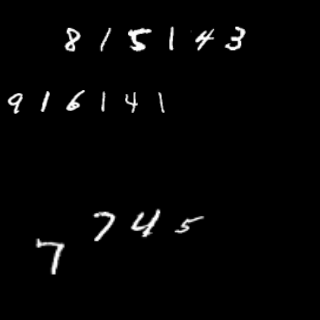 8 1 5 1 4 3
9 1 6 1 4 1
7 7 4 5